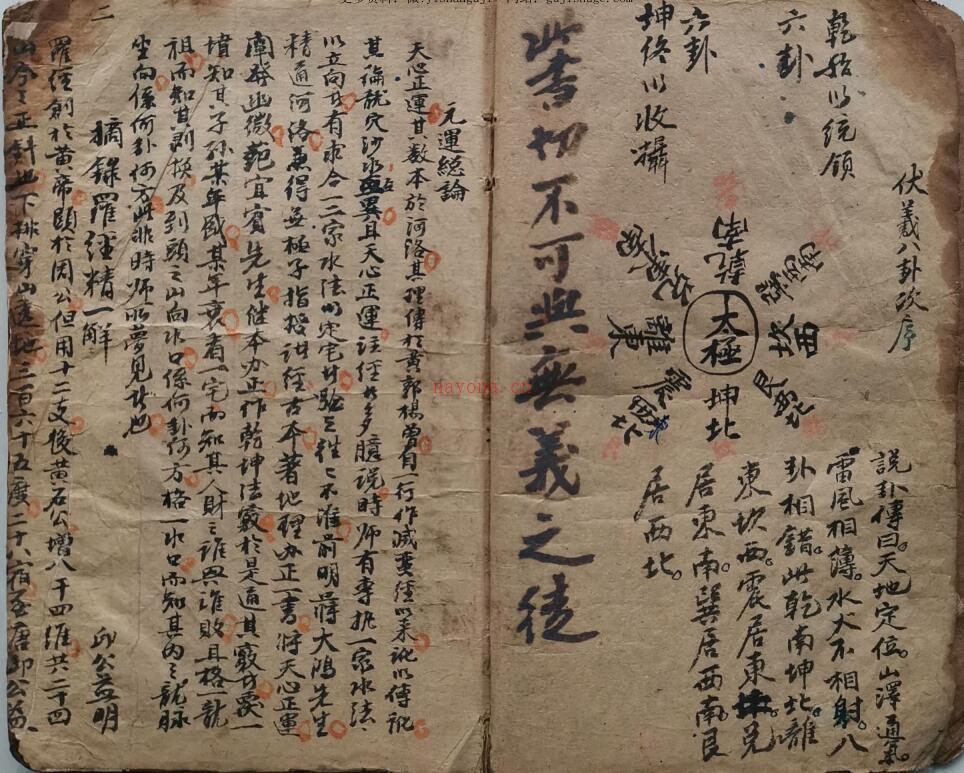 伏羲八卦次序
乾始以統領
六卦
六卦
坤終以收攝
太極
乾南
兌東南
離東
震東北
坤北
艮西北
坎西
巽西南
說卦傳曰天地定位。山澤通氣。
雷風相薄。水火不相射。八
卦相錯。此乾南坤北。離
東坎西。震居東北。兌
居東南。巽居西南。艮
居西北。
此書切不可與無義之徒
元運總論
天心正運其数本於河洛其理傳於黃郭楊曾自一行作滅蠻經以來訛以傳訛
其論龍穴沙水無異且天心正運註經者多臆說時师有專執一家水法
以立向者有求合三家水法以定宅者驗之往々不准前明蔣大鴻先生
精通河洛兼得無極子指授註經古本著地理办正一書将天心正運
闡發幽微範宜賓先生继本办正作乾坤法竅於是通其竅者葬一
墳知其子孫某年盛某年衰看一宅而知其人財之誰興誰敗且格一龍
祖而知其剥換及到頭之山向水口係何卦何方格一水口而知其內之龍脉
坐向係何卦何方此非時师所夢見者也
摘錄羅經精一解
邱公益明
羅經創於黃帝顕於周公但用十二支後黃石公增八干四維共二十四
山今之正針也下排穿山透地三百六十五度二十八宿至唐邱公益
二
nayona.cn